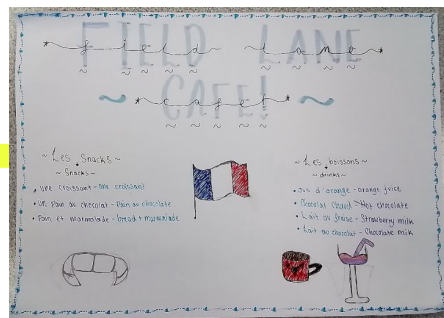 FIELD LANE
CAFE!
~ Les Snacks ~
~ Snacks ~
Une croissant - one croissant
Un Pain au chocolat - Pain au chocolate
Pain et marmalade - bread + marmalade
~ Les boissons ~
~ drinks ~
Jus d'orange - orange juice
Chocolat chaud - Hot chocolate
Lait au fraise - Strawberry milk
Lait au chocolat - Chocolate milk